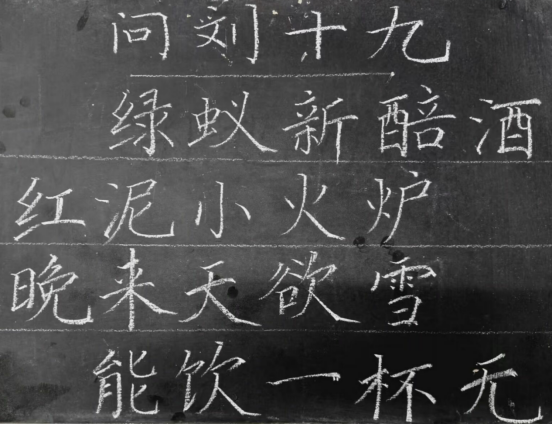 问刘十九
绿蚁新醅酒
红泥小火炉
晚来天欲雪
能饮一杯无